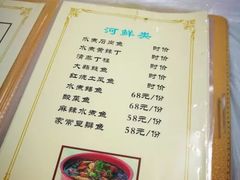 河鲜类
水煮后尖鱼 时价
水煮黄辣丁 时价
清蒸丁桂 时价
大蒜鲢鱼 时价
红烧土菜鱼 时价
水煮鳝鱼 68元/份
酸菜鱼 68元/份
麻辣水煮鱼 58元/份
家常豆瓣鱼 58元/份